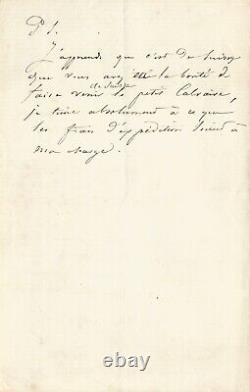 P. S.
J'apprends que c'est de
que vous avez eu la bonté de
de Suède
faire venir le petit Calvaire,
je tiens absolument à ce que
les frais d'expédition soient à
ma charge.
© ebay